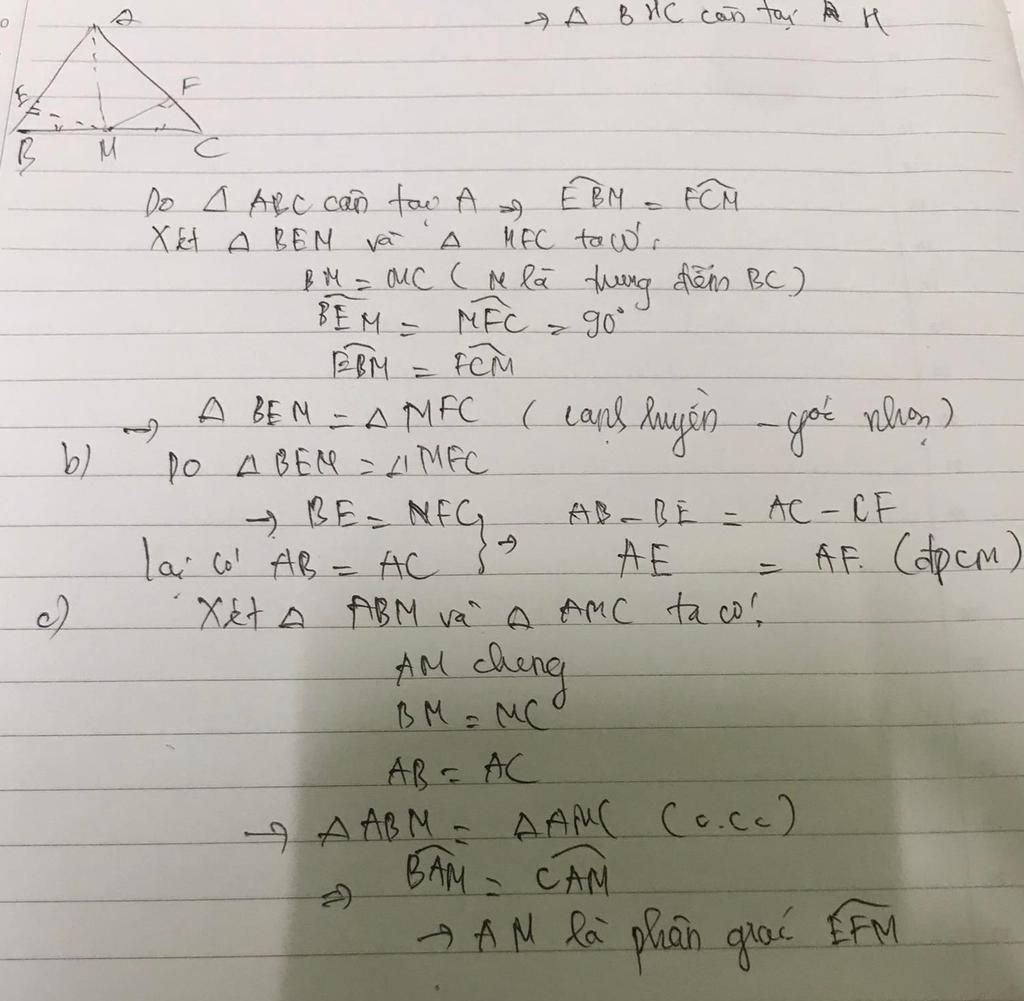 → Δ BHC cân tại H
A
E
F
B M C
Do Δ ABC cân tại A ⇒ EBM = FCM
Xét Δ BEM và Δ MFC ta có:
BM = MC ( M là trung điểm BC )
BEM = MFC = 90°
EBM = FCM
→ Δ BEM = Δ MFC ( cạnh huyền - góc nhọn )
b) Do Δ BEM = Δ MFC
→ BE = FC } ⇒ AB - BE = AC - CF
lại có AB = AC AE = AF. (đpcm)
c) Xét Δ ABM và Δ AMC ta có:
AM chung
BM = MC
AB = AC
→ Δ ABM = Δ AMC (c.c.c)
⇒ BAM = CAM
→ AM là phân giác EFM